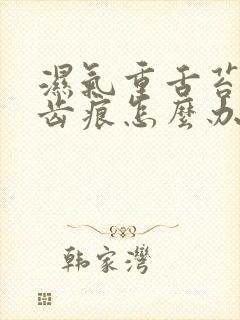 濕氣重舌苔
齒痕怎麼办
韩家灣